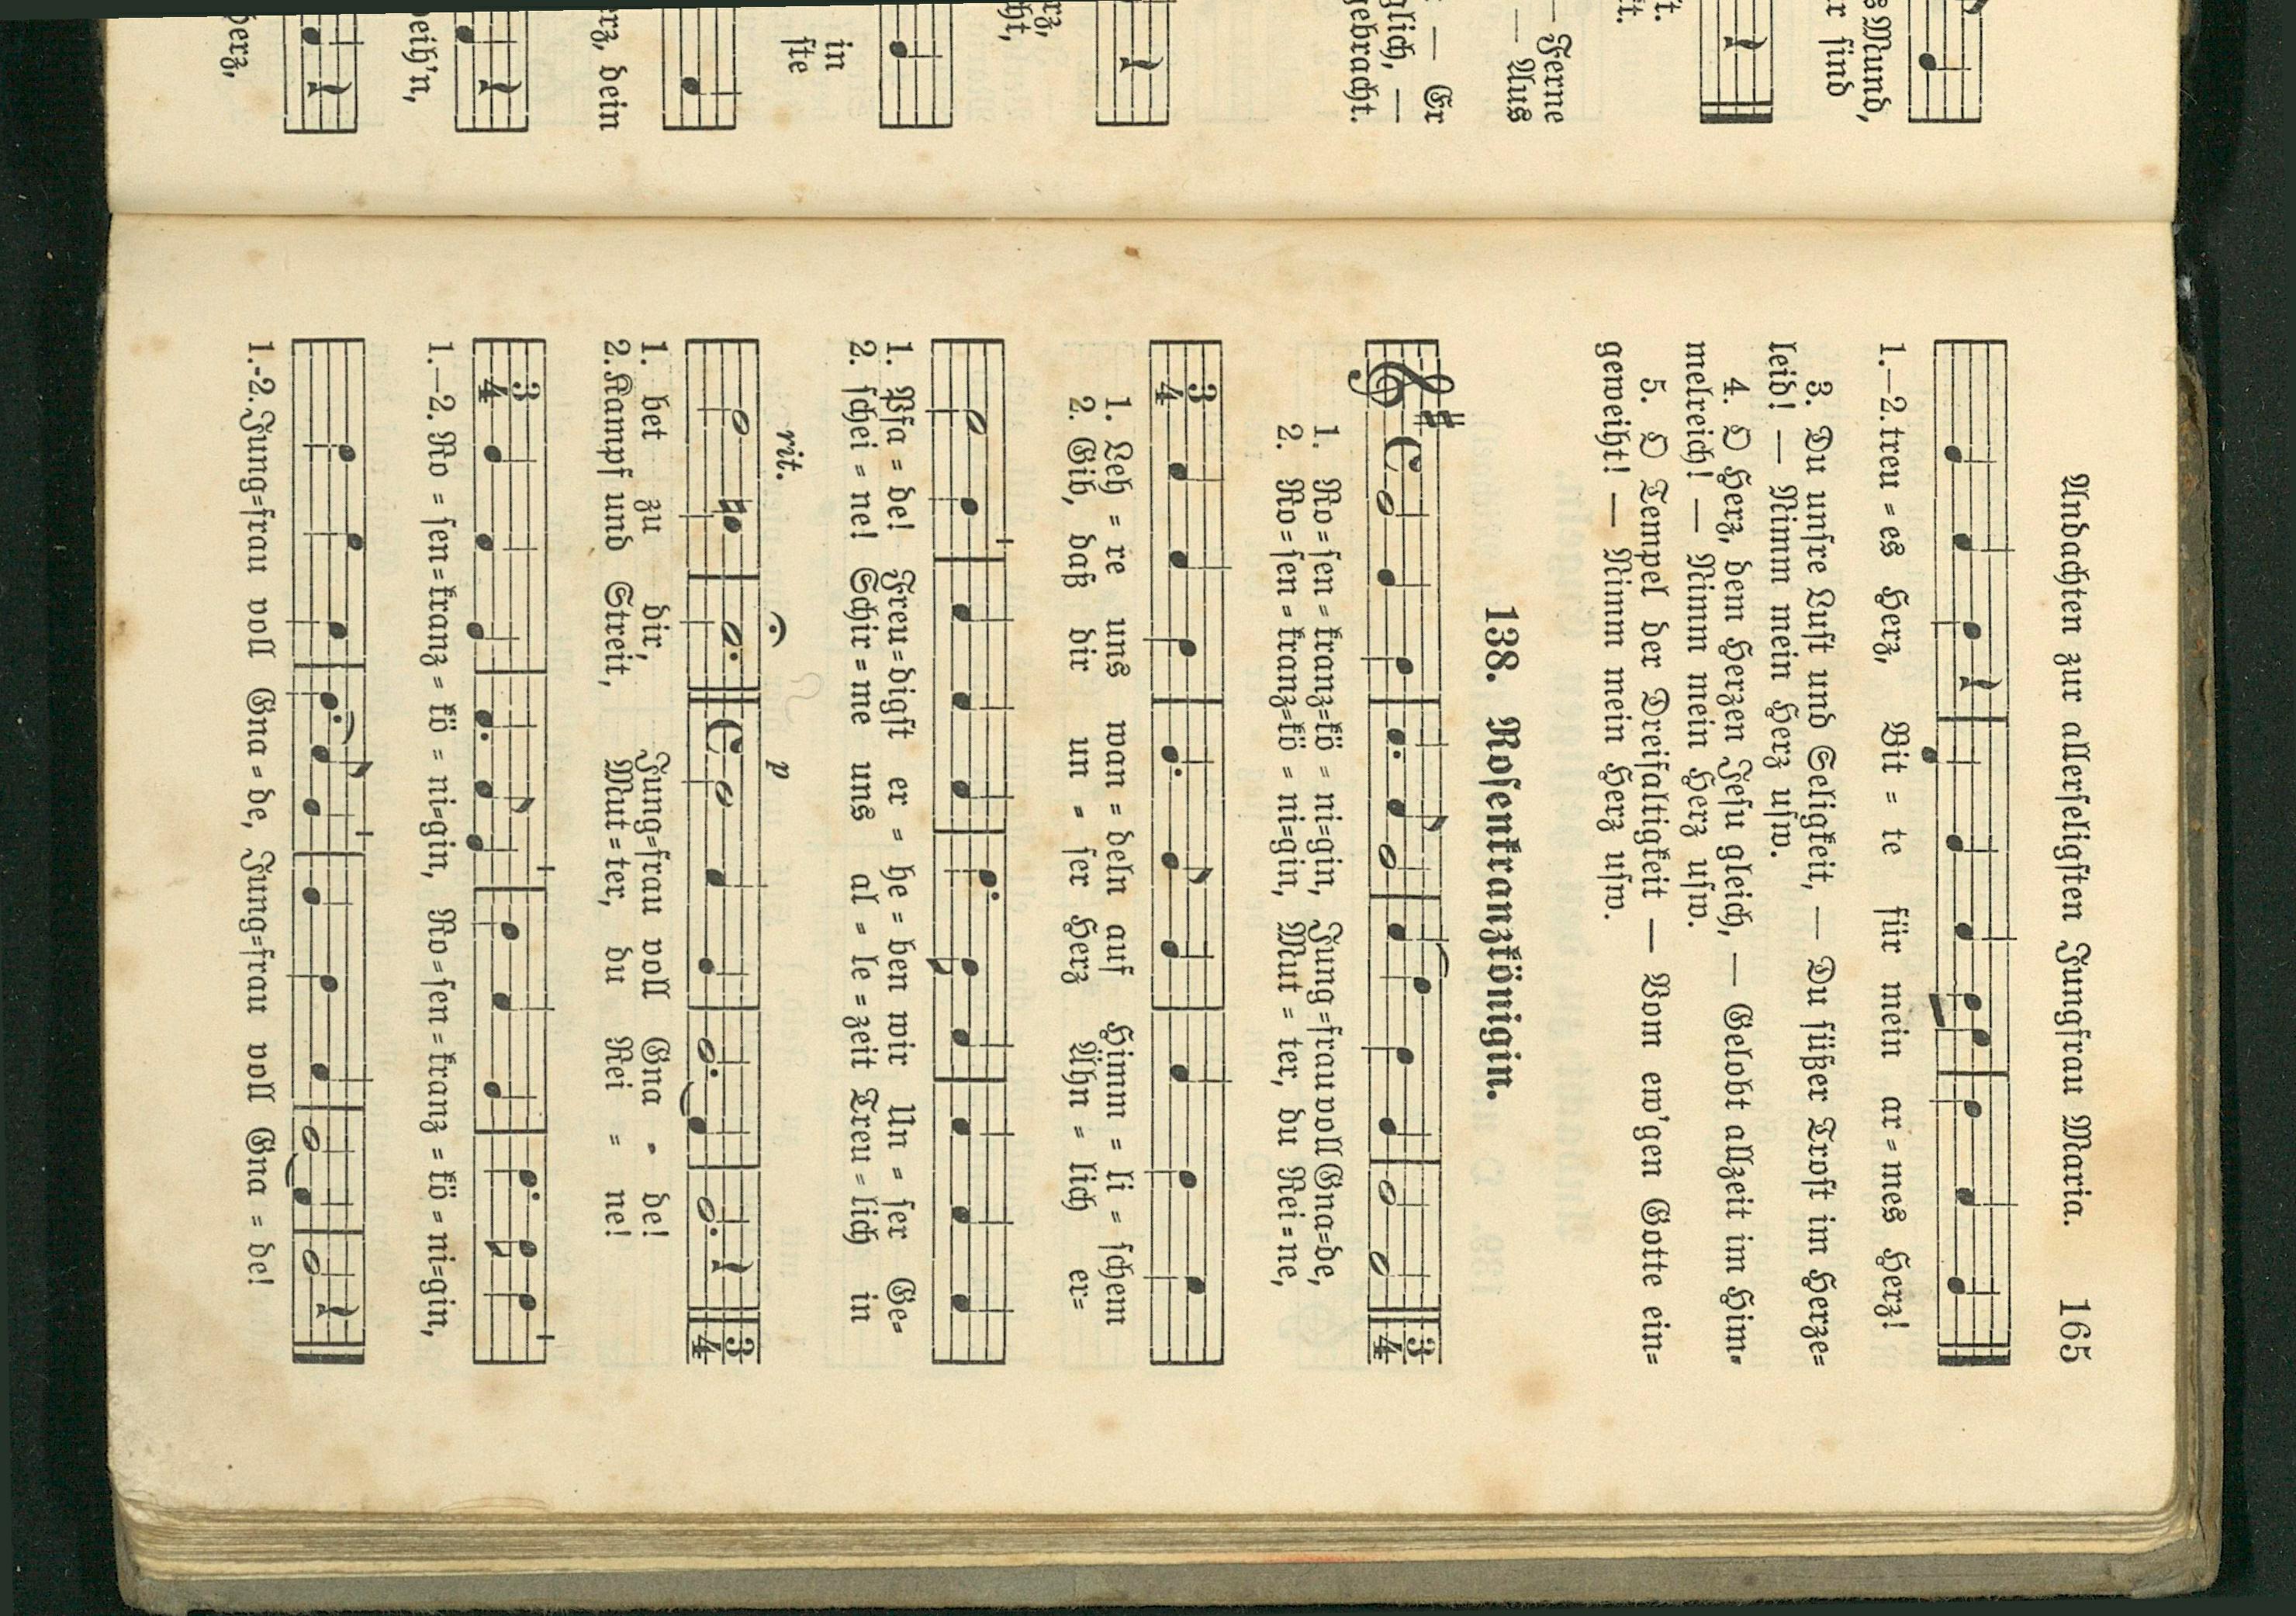 Andachten zur allerseligsten Jungfrau Maria. 165
1.—2. treu = es Herz, Bit = te für mein ar = mes Herz!
3. Du unsre Lust und Seligkeit, — Du süßer Trost im Herze=
leid! — Nimm mein Herz usw.
4. O Herz, dem Herzen Jesu gleich, — Gelobt allzeit im Him=
melreich! — Nimm mein Herz usw.
5. O Tempel der Dreifaltigkeit — Vom ew'gen Gotte ein=
geweiht! — Nimm mein Herz usw.
138. Rosenkranzkönigin.
C 3/4
1. Ro = sen = kranz=kö = ni=gin, Jung=frau voll Gna=de,
2. Ro = sen = kranz=kö = ni=gin, Mut = ter, du Rei=ne,
3/4
1. Leh = re uns wan = deln auf Himm = li = schem
2. Gib, daß dir un = ser Herz Ähn = lich er=
1. Pfa = de! Freu=digst er = he = ben wir Un = ser Ge=
2. schei = ne! Schir=me uns al = le = zeit Treu = lich in
rit. p
C 3/4
1. bet zu dir, Jung=frau voll Gna = de!
2. Kampf und Streit, Mut=ter, du Rei = ne!
3/4
1.—2. Ro = sen=kranz = kö = ni=gin, Ro=sen=kranz = kö = ni=gin,
1.-2. Jung=frau voll Gna = de, Jung=frau voll Gna = de!
sMund,
r sind
t.
t.
— Ferne
— Aus
— Er
glich, —
gebracht.
rz,
ht,
in
ste
rz, dein
eih'n,
Herz,